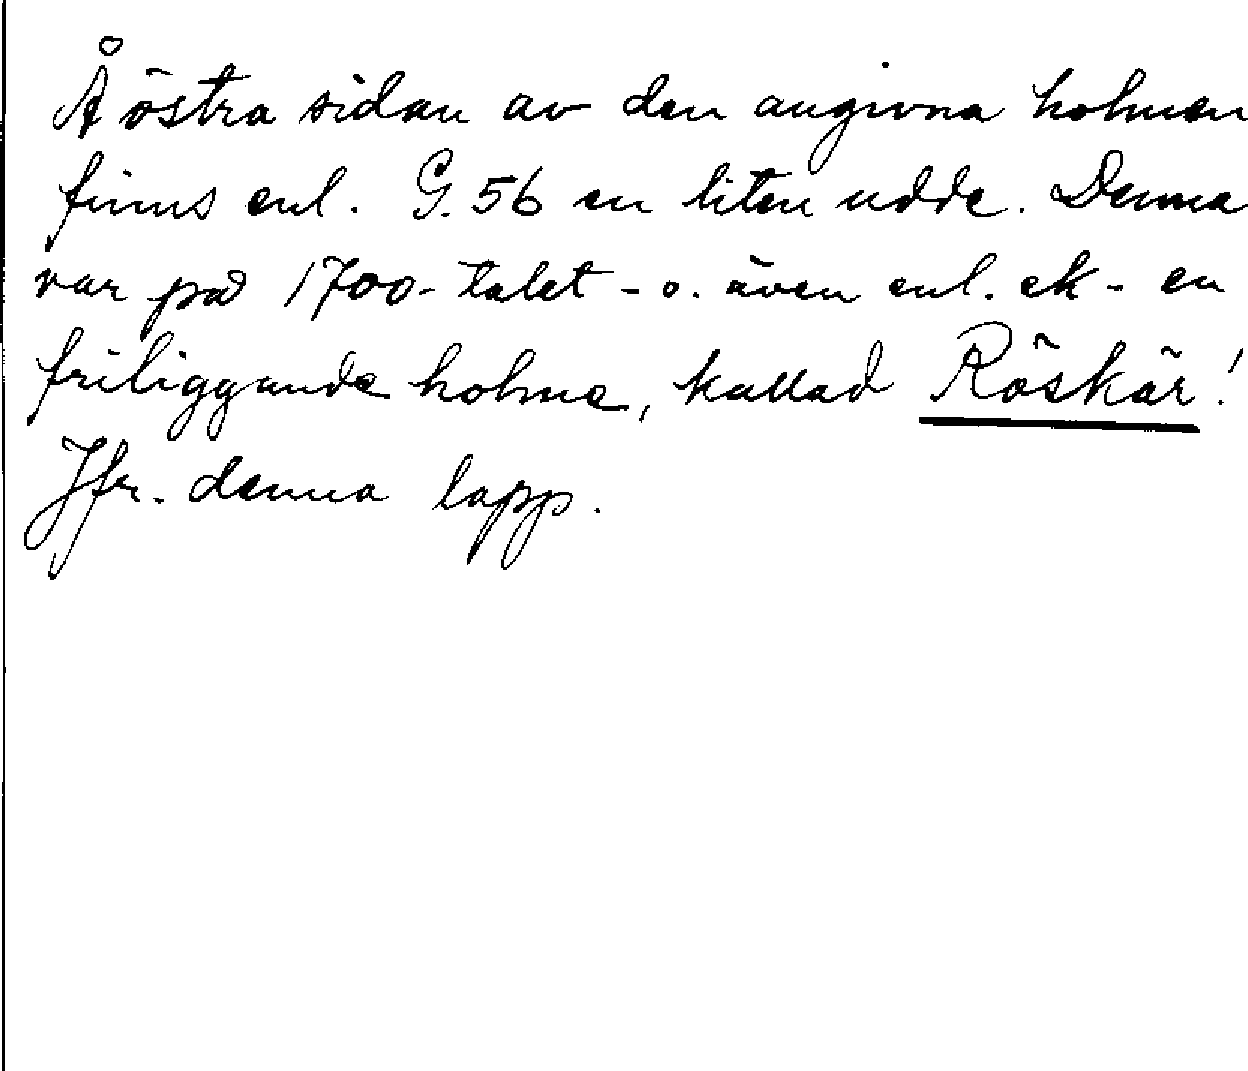 Å östra sidan av den angivna holmen
finns enl. G. 56 en liten udde. Denna
var på 1700-talet - o. även enl. ek - en
friliggande holme, kallad Röskär!
Jfr. denna lapp.